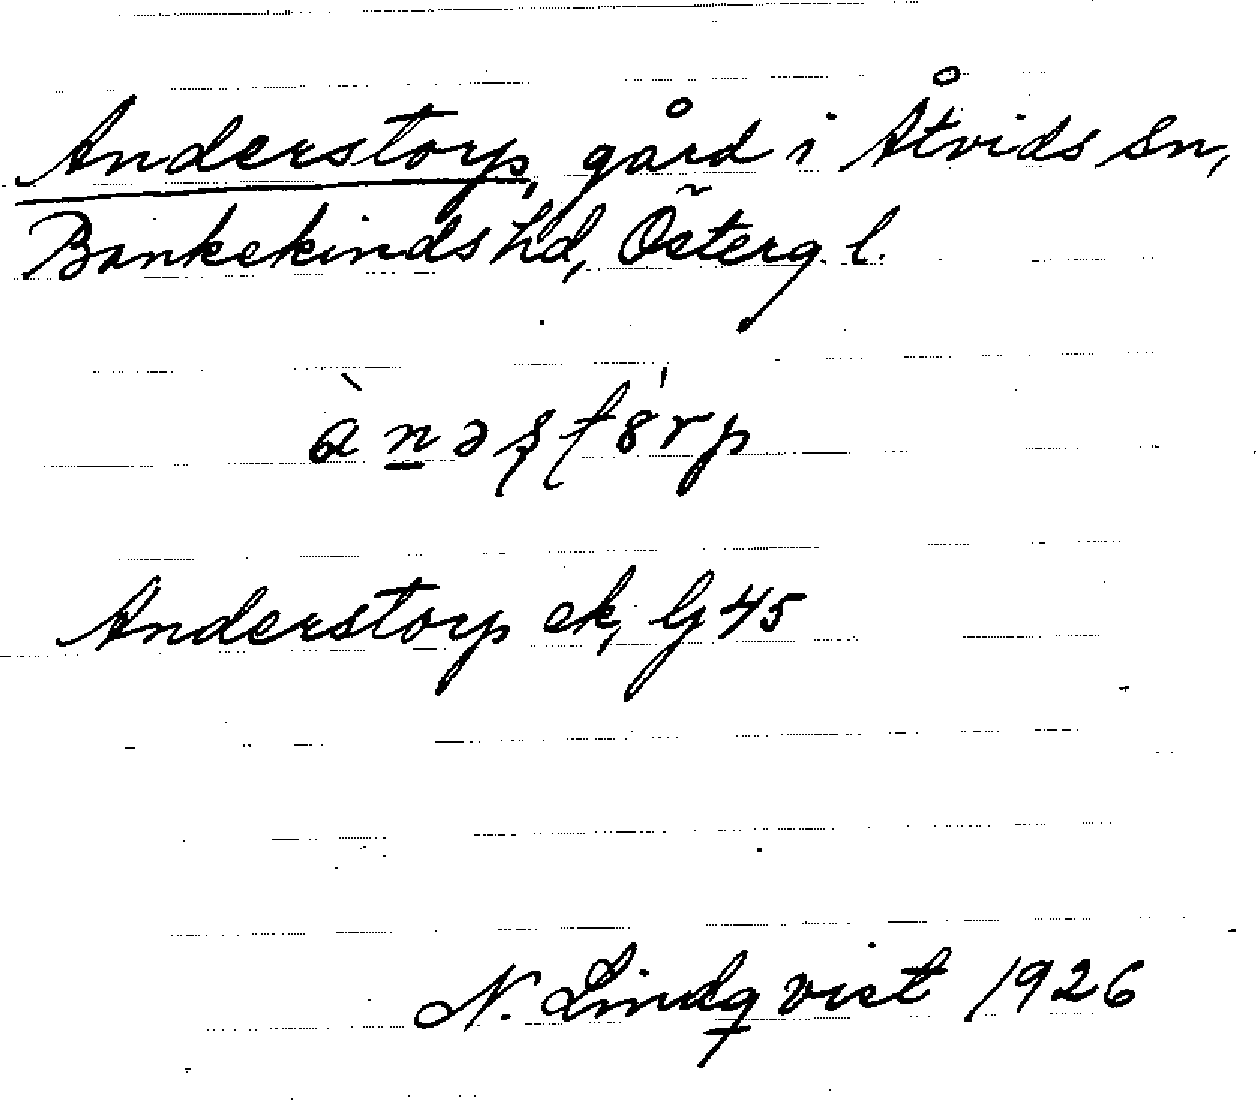 Anderstorp, gård i Åtvids sn,
Bankekinds hd, Österg. l.
ànəʂʈȣ́rp
Anderstorp ek, lj 45
N. Lindqvist 1926